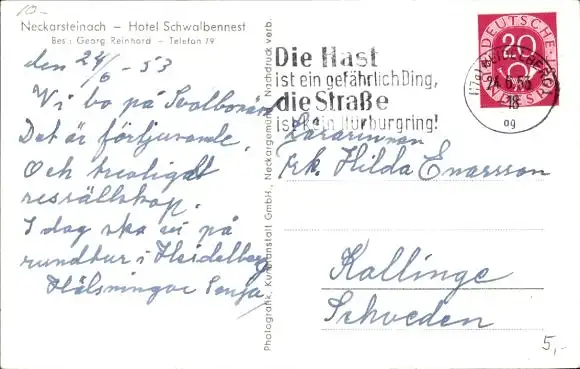 10.-
Neckarsteinach – Hotel Schwalbennest
Bes.: Georg Reinhard – Telefon 79
den 24/6 - 53
Vi bo på Svalbonäs
Det är förtjusande.
Och trevligt
ressällskap.
I dag ska vi på
rundtur i Heidelberg
Hälsningar Senja
Photografik, Kunstanstalt GmbH., Neckargemünd, Nachdruck verb.
Die Hast
ist ein gefährlich Ding,
die Straße
ist kein Nürburgring!
DEUTSCHE
20
BUNDESPOST
HEIDELBERG
24.6.53
18
ag
Lärarinnan
Frk. Hilda Enarsson
Kallinge
Schweden
5,-